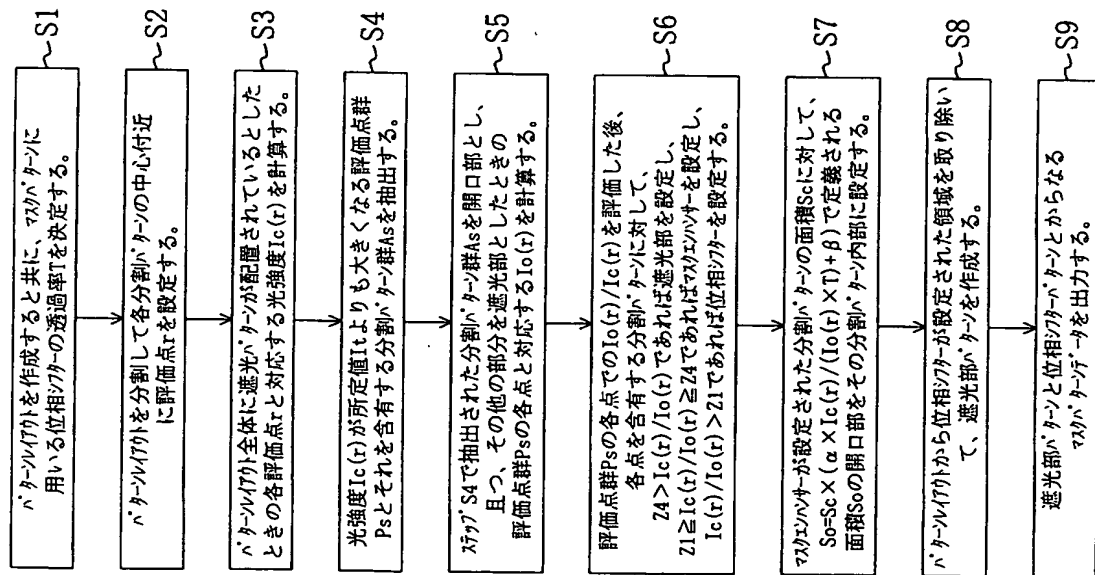 パターンレイアウトを作成すると共に、マスクパターンに
用いる位相シフターの透過率Tを決定する。
S1
パターンレイアウトを分割して各分割パターンの中心付近
に評価点rを設定する。
S2
パターンレイアウト全体に遮光パターンが配置されているとした
ときの各評価点rと対応する光強度Ic(r)を計算する。
S3
光強度Ic(r)が所定値Itよりも大きくなる評価点群
Psとそれを含有する分割パターン群Asを抽出する。
S4
ステップS4で抽出された分割パターン群Asを開口部とし、
且つ、その他の部分を遮光部としたときの
評価点群Psの各点と対応するIo(r)を計算する。
S5
評価点群Psの各点でのIo(r)/Ic(r)を評価した後、
各点を含有する分割パターンに対して、
Z4>Ic(r)/Io(r)であれば遮光部を設定し、
Z1≧Ic(r)/Io(r)≧Z4であればマスクエンハンサーを設定し、
Ic(r)/Io(r)>Z1であれば位相シフターを設定する。
S6
マスクエンハンサーが設定された分割パターンの面積Scに対して、
So=Sc×(α×Ic(r)/(Io(r)×T)+β)で定義される
面積Soの開口部をその分割パターン内部に設定する。
S7
パターンレイアウトから位相シフターが設定された領域を取り除い
て、遮光部パターンを作成する。
S8
遮光部パターンと位相シフターパターンとからなる
マスクパターンデータを出力する。
S9